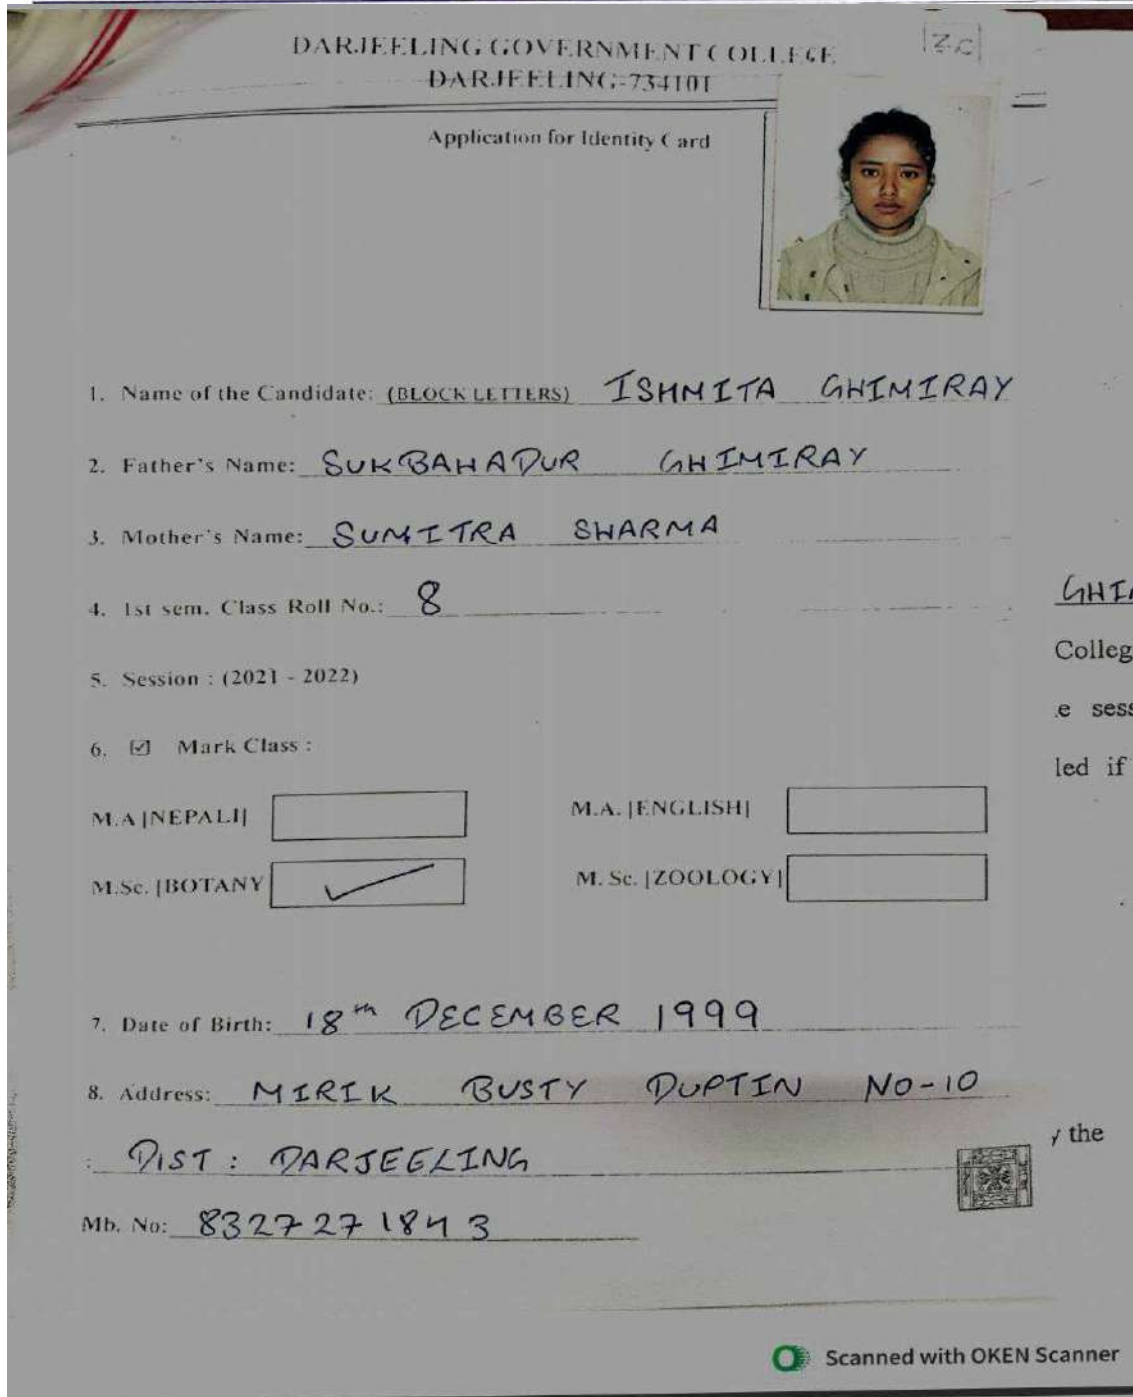 DARJEELING GOVERNMENT COLLEGE
DARJEELING-734101
Application for Identity Card
1. Name of the Candidate: (BLOCK LETTERS) ISHMITA GHIMIRAY
2. Father's Name: SUKBAHADUR GHIMIRAY
3. Mother's Name: SUMITRA SHARMA
4. 1st sem. Class Roll No.: 8
5. Session : (2021 - 2022)
6. ☑ Mark Class :
M.A [NEPALI] M.A. [ENGLISH]
M.Sc. [BOTANY ✓ M. Sc. [ZOOLOGY]
7. Date of Birth: 18th DECEMBER 1999
8. Address: MIRIK BUSTY DUPTIN NO-10
: DIST : DARJEELING
Mb. No: 8327271843
Colleg
e sess
led if
y the
Scanned with OKEN Scanner